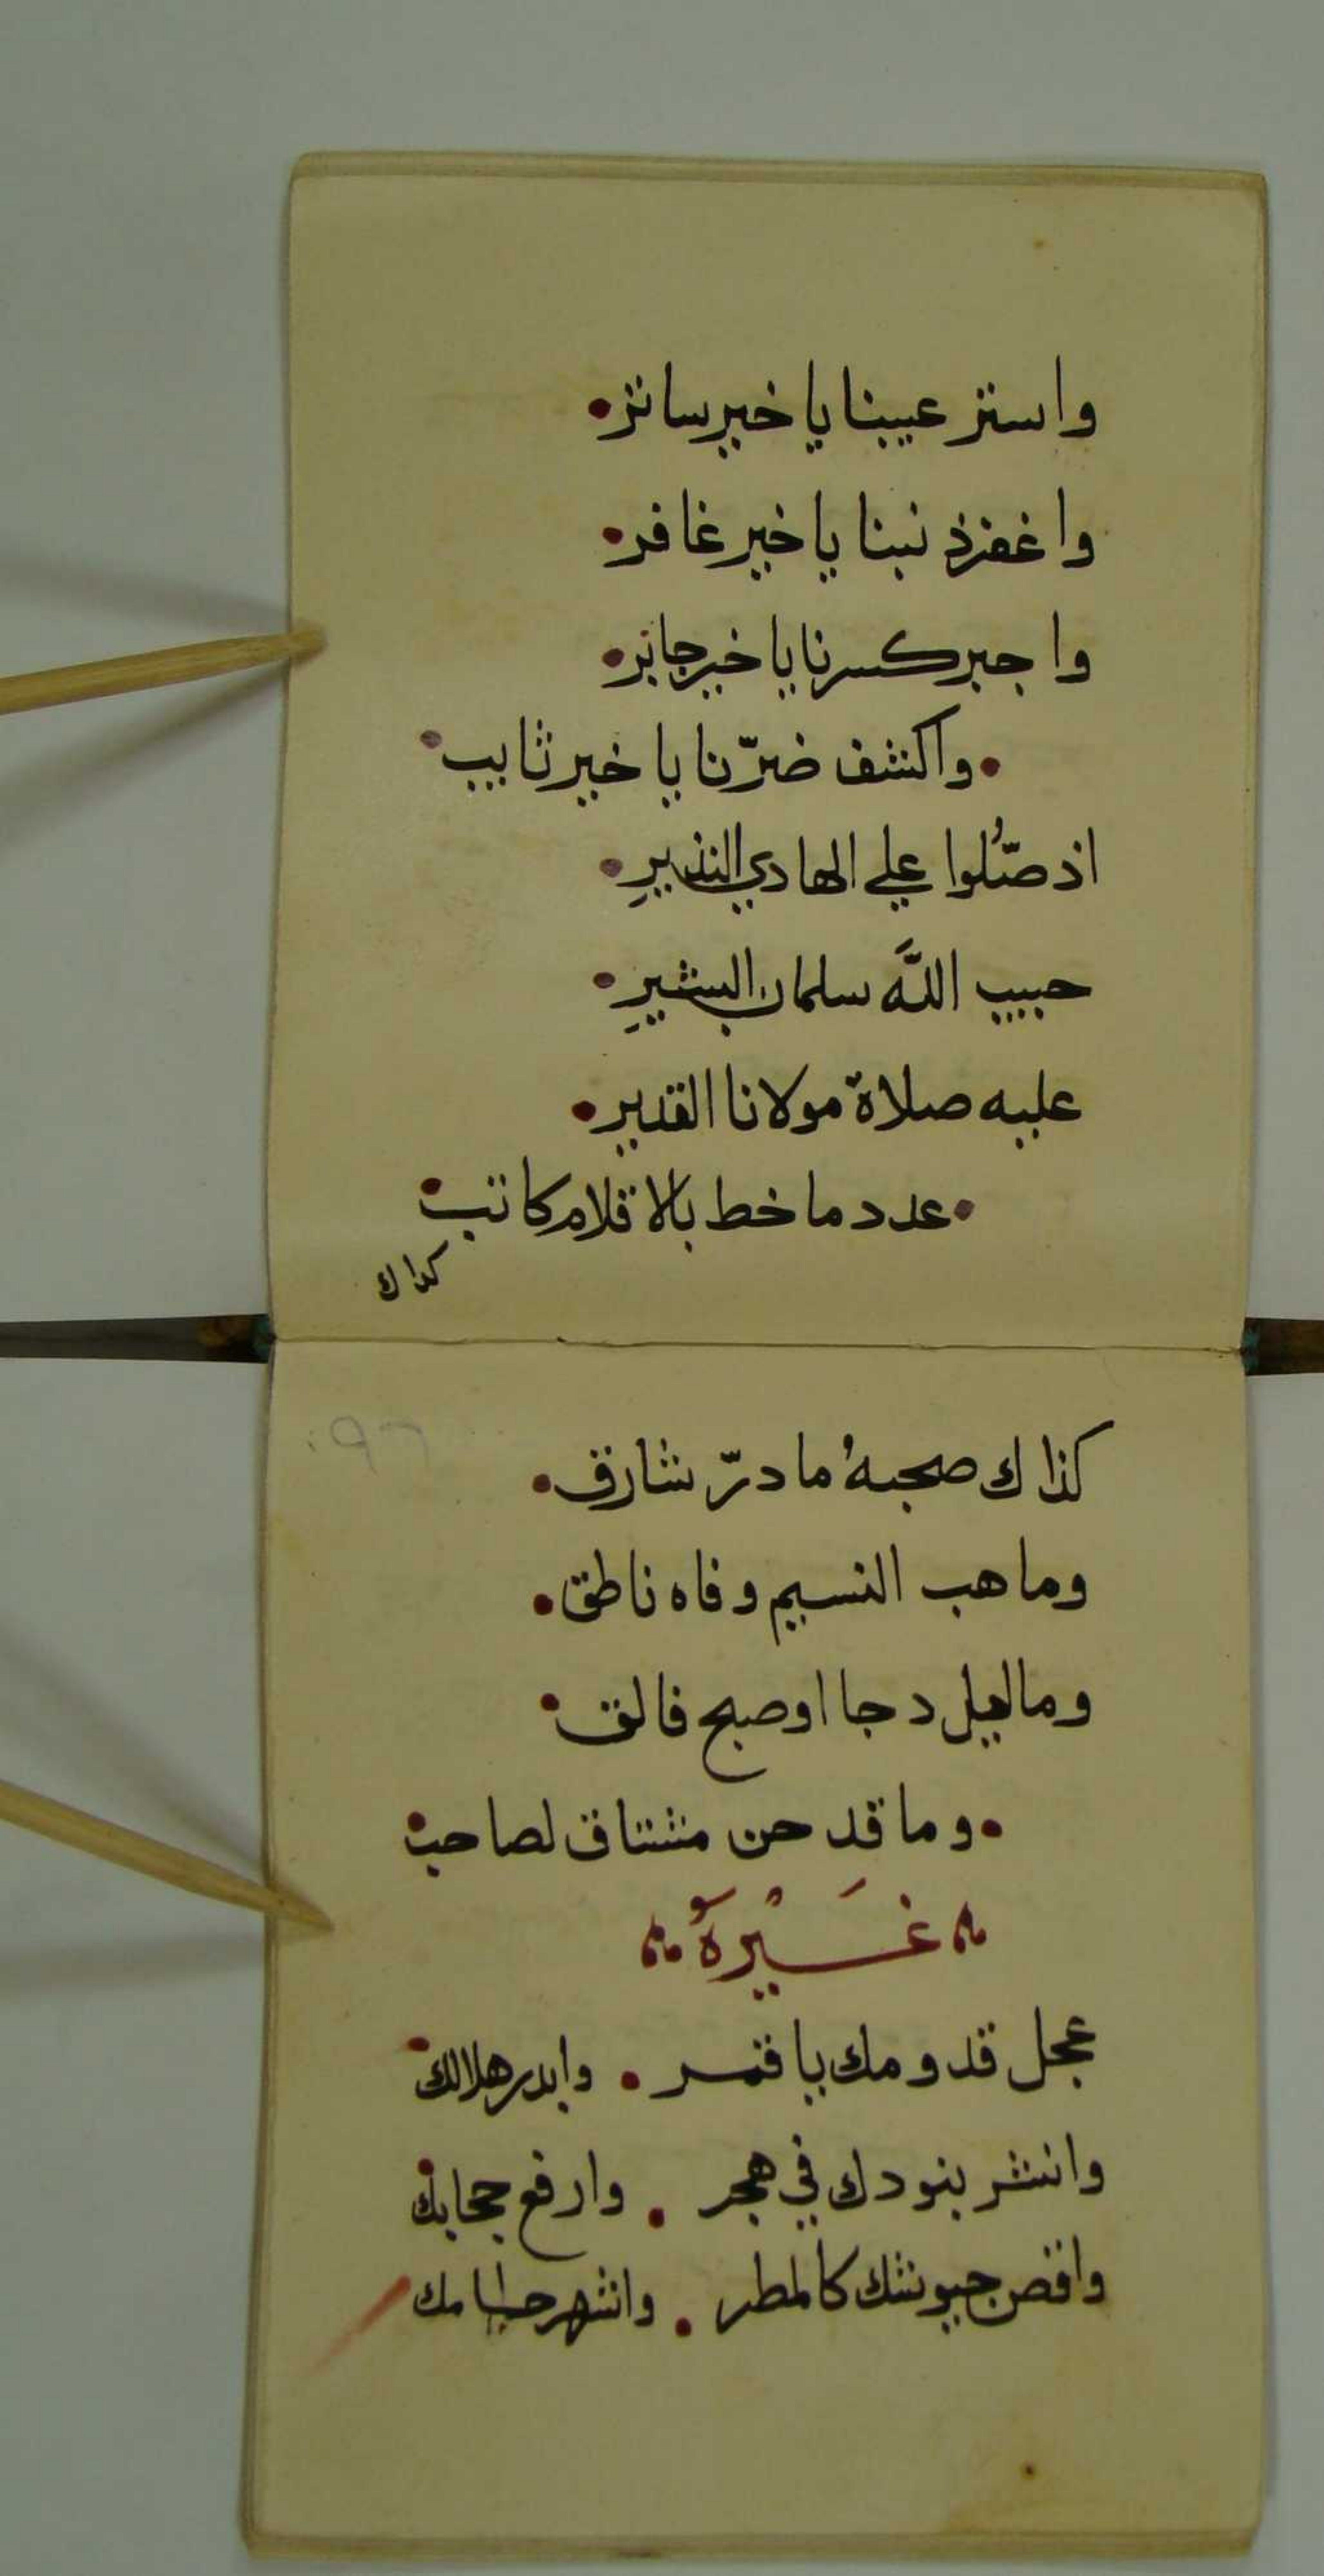 واستر عيبنا يا خير ساتر
واغفر ذنبنا يا خير غافر
واجبر كسرنا يا خير جابر
واكشف ضرّنا يا خير ثايب
اذ صَّلُوا علي الهادي النذيرِ
حبيب اللَّه سلمان البشيرِ
عليه صلاة مولانا القدير
عدد ما خط بالاقلام كاتب
كذاك
٩٦
كذاك صحبهُ ما درّ شارق
وما هب النسيم وفاه ناطق
وماليل دجا او صبح فالق
وما قد حن مشتاق لصاحب
غَيْرهُ
عجل قدومك يا قمر . وابدر هلالك
وانشر بنودك في هجر . وارفع حجابك
واقص جيوشك كالمطر . واشهر حسامك